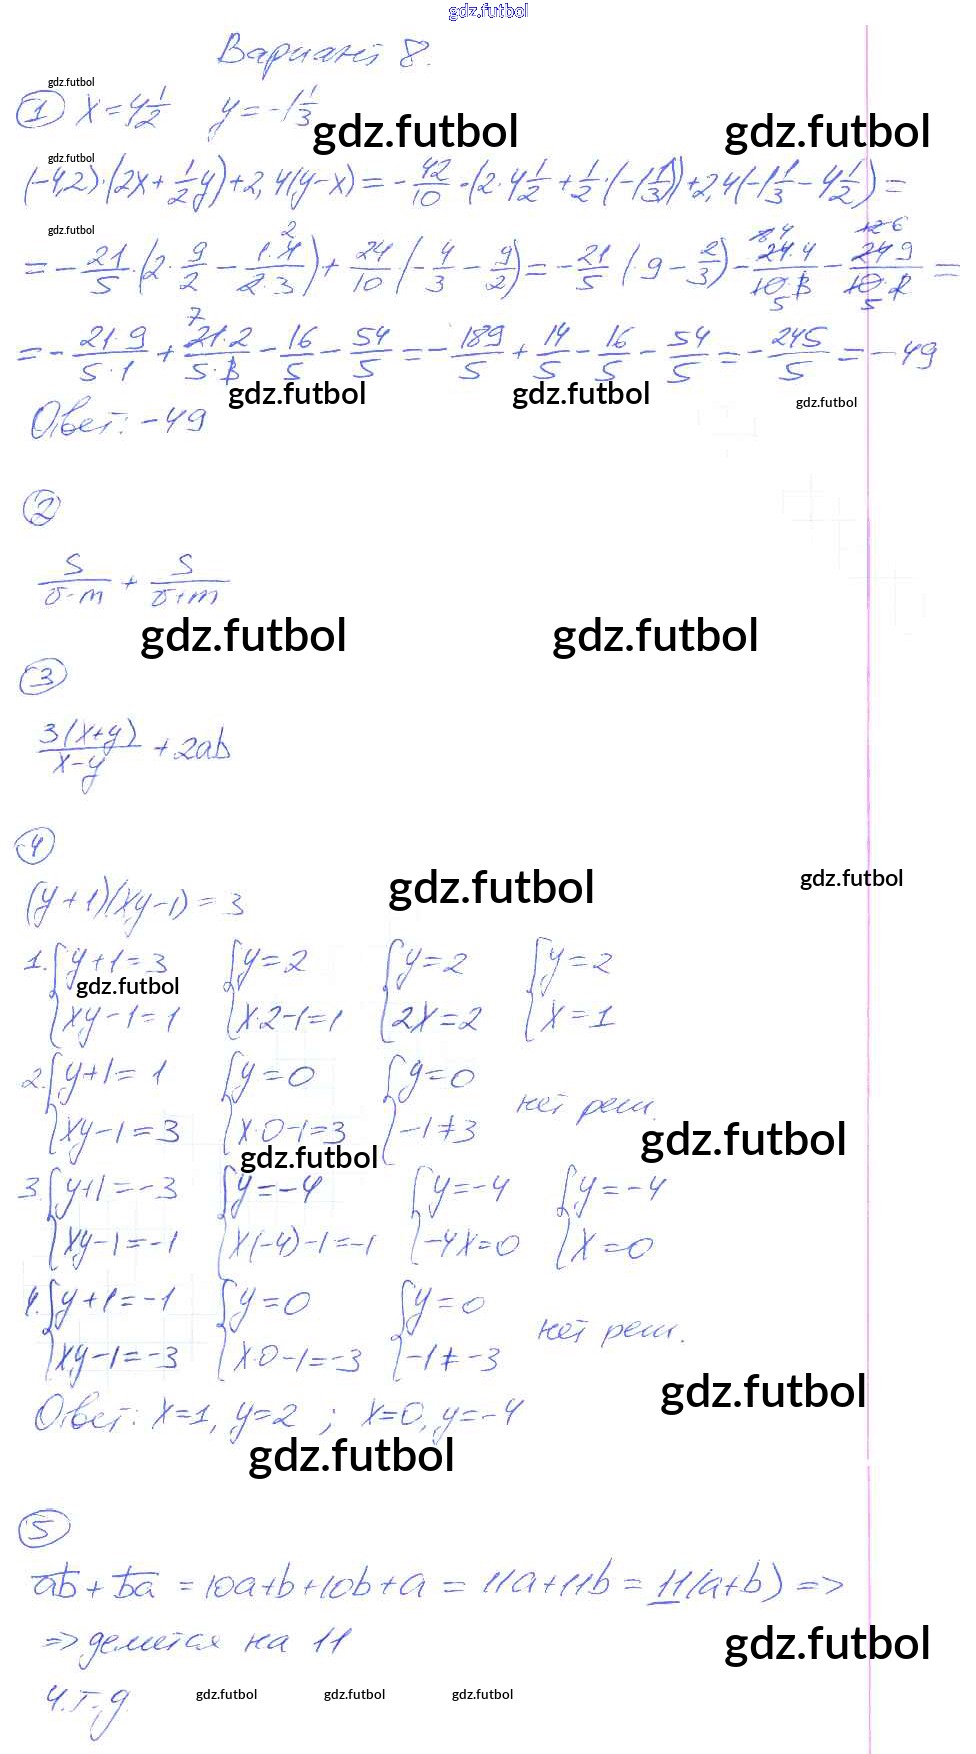 gdz.futbol
Вариант 8.
gdz.futbol
① x = 4 1/2   y = -1 1/3
gdz.futbol gdz.futbol
gdz.futbol
(-4,2)·(2x + 1/2 y) + 2,4(y - x) = - 42/10 · (2 · 4 1/2 + 1/2 · (-1 1/3)) + 2,4(-1 1/3 - 4 1/2) =
gdz.futbol
= - 21/5 · (2 · 9/2 - 1·4/2·3) + 24/10 (- 4/3 - 9/2) = - 21/5 (·9 - 2/3) - 24·4/10·3 - 24·9/10·2 =
= - 21·9/5·1 + 21·2/5·3 - 16/5 - 54/5 = - 189/5 + 14/5 - 16/5 - 54/5 = - 245/5 = -49
gdz.futbol gdz.futbol gdz.futbol
Ответ: -49
②
S/(v-m) + S/(v+m)
gdz.futbol gdz.futbol
③
3(x+y)/(x-y) + 2ab
④
gdz.futbol gdz.futbol
(y+1)(xy-1) = 3
1. { y+1=3   { y=2   { y=2   { y=2
gdz.futbol
xy-1=1   x·2-1=1   2x=2   x=1
2. { y+1=1   { y=0   { y=0   нет реш.
xy-1=3   x·0-1=3   -1≠3
gdz.futbol
gdz.futbol
3. { y+1=-3   { y=-4   { y=-4   { y=-4
xy-1=-1   x(-4)-1=-1   -4x=0   x=0
4. { y+1=-1   { y=0   { y=0   нет реш.
xy-1=-3   x·0-1=-3   -1≠-3
gdz.futbol
Ответ: x=1, y=2 ; x=0, y=-4
gdz.futbol
⑤
ab + ba = 10a+b+10b+a = 11a+11b = 11(a+b) =>
=> делится на 11
gdz.futbol
ч.т.д.
gdz.futbol gdz.futbol gdz.futbol